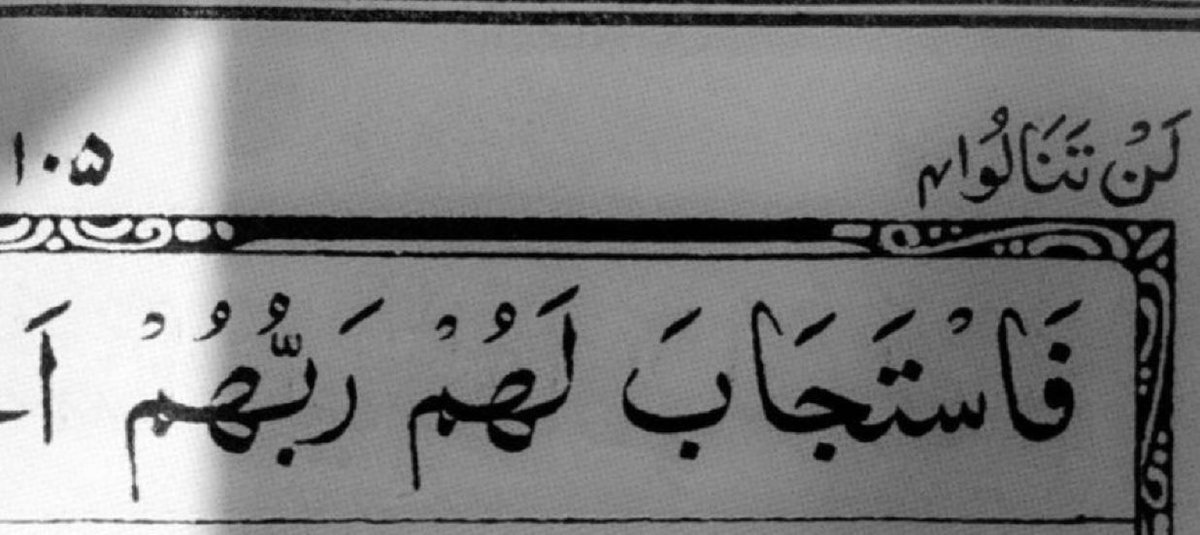 لَنْ تَنَالُوا ۴ ۱۰۵
فَاسْتَجَابَ لَهُمْ رَبُّهُمْ اَ